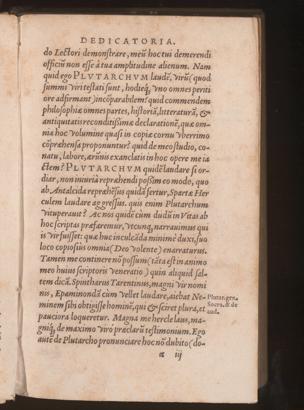 DEDICATORIA.
do Lectori demonstrare, meū hoc tui demerendi
officiū non esse à tua amplitudine alienum. Nam
quid ego PLVTARCHVM laudē, virū (quod
summi viri testati sunt, hodieq́, vno omnes periti
ore adfirmant) incōparabilem? quid commendem
philosophiæ omnes partes, historiā, litteraturā, &
antiquitatis reconditissimæ declarationē, quæ om-
nia hoc volumine quasi in copiæ cornu vberrimo
cōpræhensa proponuntur? quid de meo studio, co-
natu, labore, ærūnis exanclatis in hoc opere me ia
ctem? PLVTARCHVM quidē laudare si or-
diar, non iniuria repræhendi possim eo modo, quo
ab Antalcida repræhēsus quidā fertur, Spartæ Her
culem laudare aggressus. quis enim Plutarchum
vituperauit? Ac nos quidē cùm dudū in Vitas ab
hoc scriptas præfaremur, vtcunq, narrauimus qui
is vir fuisset: quæ huc inculcāda minimè duxi, suo
loco copiosiùs omnia (Deo volente) enarraturus.
Tamen me continere nō possum (tāta est in animo
meo huius scriptoris veneratio) quin aliquid sal-
tem dicā. Spintharus Tarentinus, magni vir nomi
nis, Epaminondā cùm vellet laudare, aiebat Ne-
minem sibi obtigisse hominē, qui & sciret plura, et
pauciora loqueretur. Magna me hercle laus, ma-
gniq́, de maximo viro præclarū testimonium. Ego
autē de Plutarcho pronunciare hoc nō dubito (do-
Plutar. gen.
Socra. & de
aud.
α iij